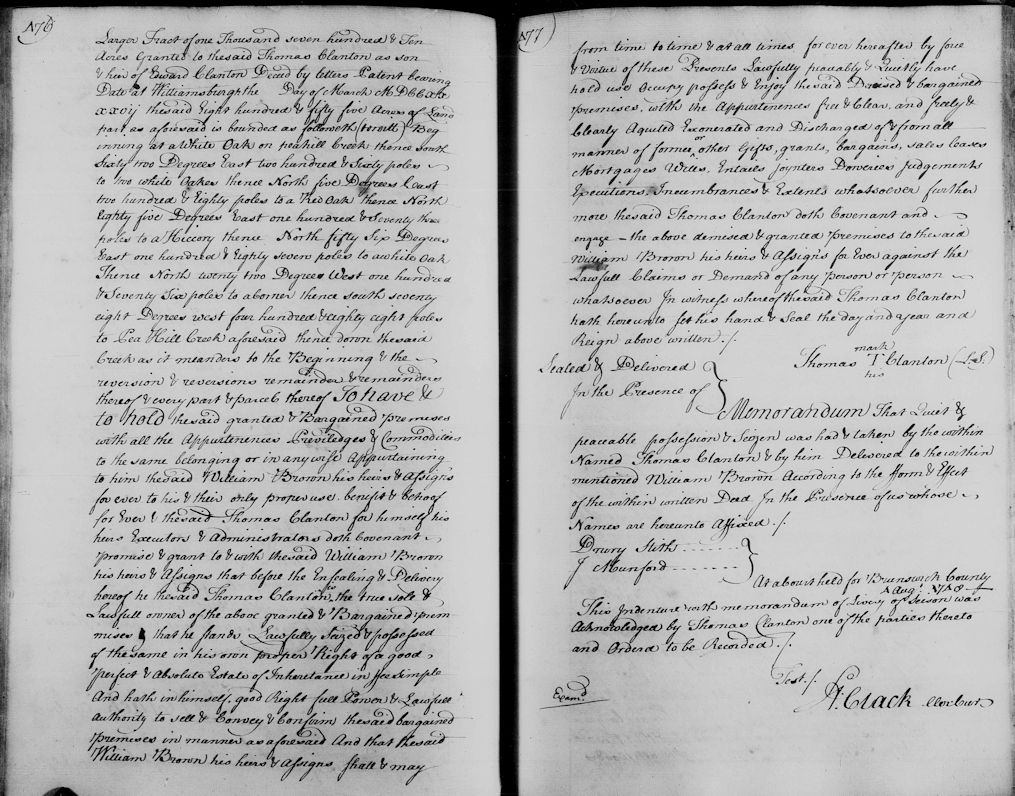 176)
Larger Tract of one Thousand seven hundred & Ten
Acres Granted to the said Thomas Clanton as son
& heir of Edward Clanton Decd by letters Patent bearing
Date at Williamsburgh the Day of March MDCC
xxvii the said Eight hundred & fifty five Acres of Land
part as aforesaid is bounded as followeth (to witt) Beg
inning at a White Oak on peahill Creek thence South
Sixty two Degrees East two hundred & Sixty poles
to two white Oakes thence North five Degrees East
two hundred & Eighty poles to a Red Oak thence North
Eighty five Degrees East one hundred & Seventy three
poles to a Hiccory thence North fifty Six Degrees
East one hundred & Eighty seven poles to a white Oak
Thence North twenty two Degrees West one hundred
& Seventy Six poles to a Corner thence south seventy
eight Degrees west four hundred & eighty eight poles
to Pea Hill Creek aforesaid thence down the said
Creek as it meanders to the Beginning & the
reversion & reversions remainder & remainders
thereof & every part & parcel thereof To have &
to hold the said granted & Bargained premises
with all the Appurtenences Priviledges & Commodities
to the same belonging or in any wise Appurtaining
to him the said William Brown his heirs & Assigns
for ever to his & their only proper use benefit & behoof
for Ever & the said Thomas Clanton for himself his
heirs Executors & Administrators doth Covenant
promise & grant to & with the said William Brown
his heirs & Assigns that before the Ensealing & Delivery
hereof he the said Thomas Clanton is the true sole &
Lawfull owner of the above granted & Bargained prem
mises & that he stands Lawfully Seized & possessed
of the same in his own proper Right of a good
perfect & Absolute Estate of Inheretance in ffee Simple
And hath in himself good Right full Power & Lawfull
Authority to sell & Convey & Confirm the said bargained
premises in manner as aforesaid And that the said
William Brown his heirs & Assigns shall & may
177)
from time to time & at all times for ever hereafter by force
& Virtue of these Presents Lawfully peaceably & Quietly have
hold use occupy possess & Enjoy the said Demised & bargained
premises, with the Appurtenences free & Clear, and freely &
Clearly Aquited Exonerated and Discharged of & from all
manner of former or other Gifts, grants, bargains, sales Leases
Mortgages Wills, Entails joynters Doweries judgements
Executions, Incumbrances & Extents whatsoever further
more the said Thomas Clanton doth Covenant and
engage the above demised & granted premises to the said
William Brown his heirs & Assigns for Ever against the
Lawfull Claims or Demand of any person or person
whatsoever In witness whereof the said Thomas Clanton
hath hereunto set his hand & Seal the day and year and
Reign above written ./.
Sealed & Delivered
In the Presence of
mark
Thomas T Clanton (L.S.)
his
Memorandum That Quiet &
peaceable possession & Seizen was had & taken by the within
Named Thomas Clanton & by him Delivered to the within
mentioned William Brown According to the fform & Effect
of the within written Deed In the Presence of us whose
Names are hereunto Affixed ./.
Drury Stith
J Munford
At a Court held for Brunswick County
1 Augt. 1748
This Indenture with memorandum of Livery of Seison was
Acknowledged by Thomas Clanton one of the parties thereto
and Orderd to be Recorded ./.
Test ./.
Examd.
St. Clack Clor Cur